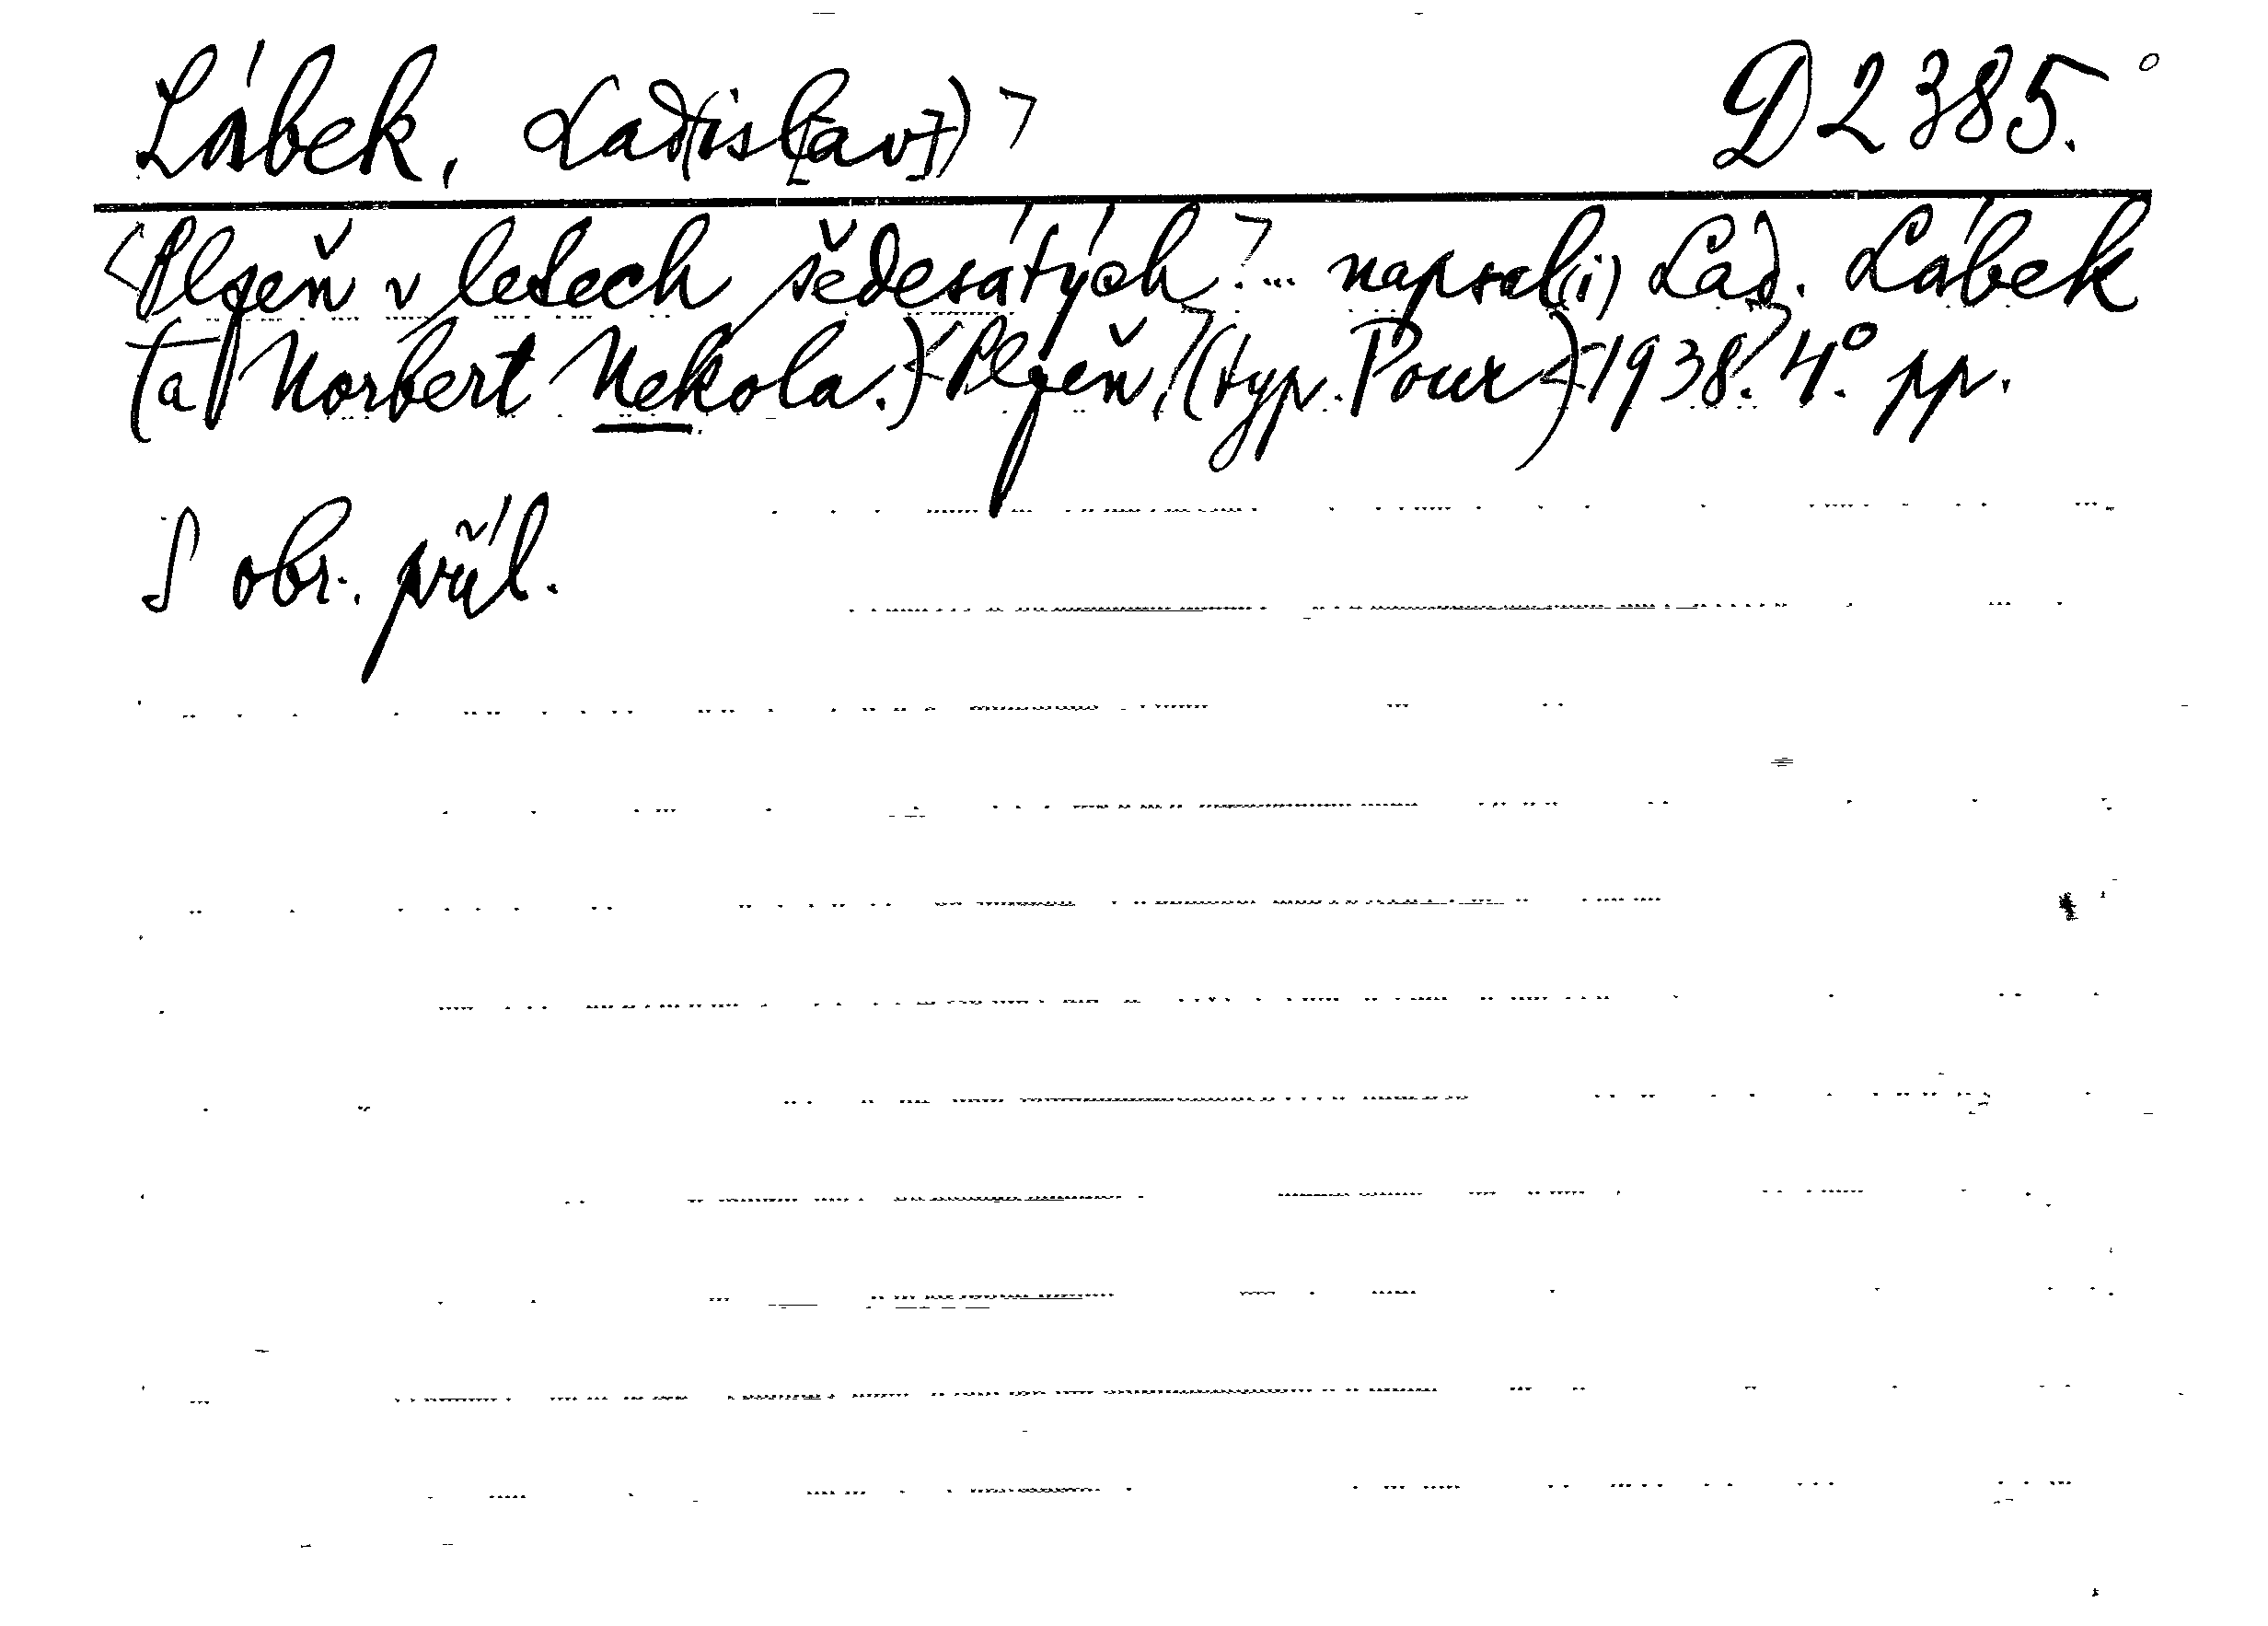 Lábek, Lad(isl[av]) > D 2385.
<Plzeň v letech šedesátých> ... napsal(i) Lad. Lábek
(a Norbert Nekola.) <Plzeň,> (typ. Pour) <1938.> 4°. pp.
S obr. příl.